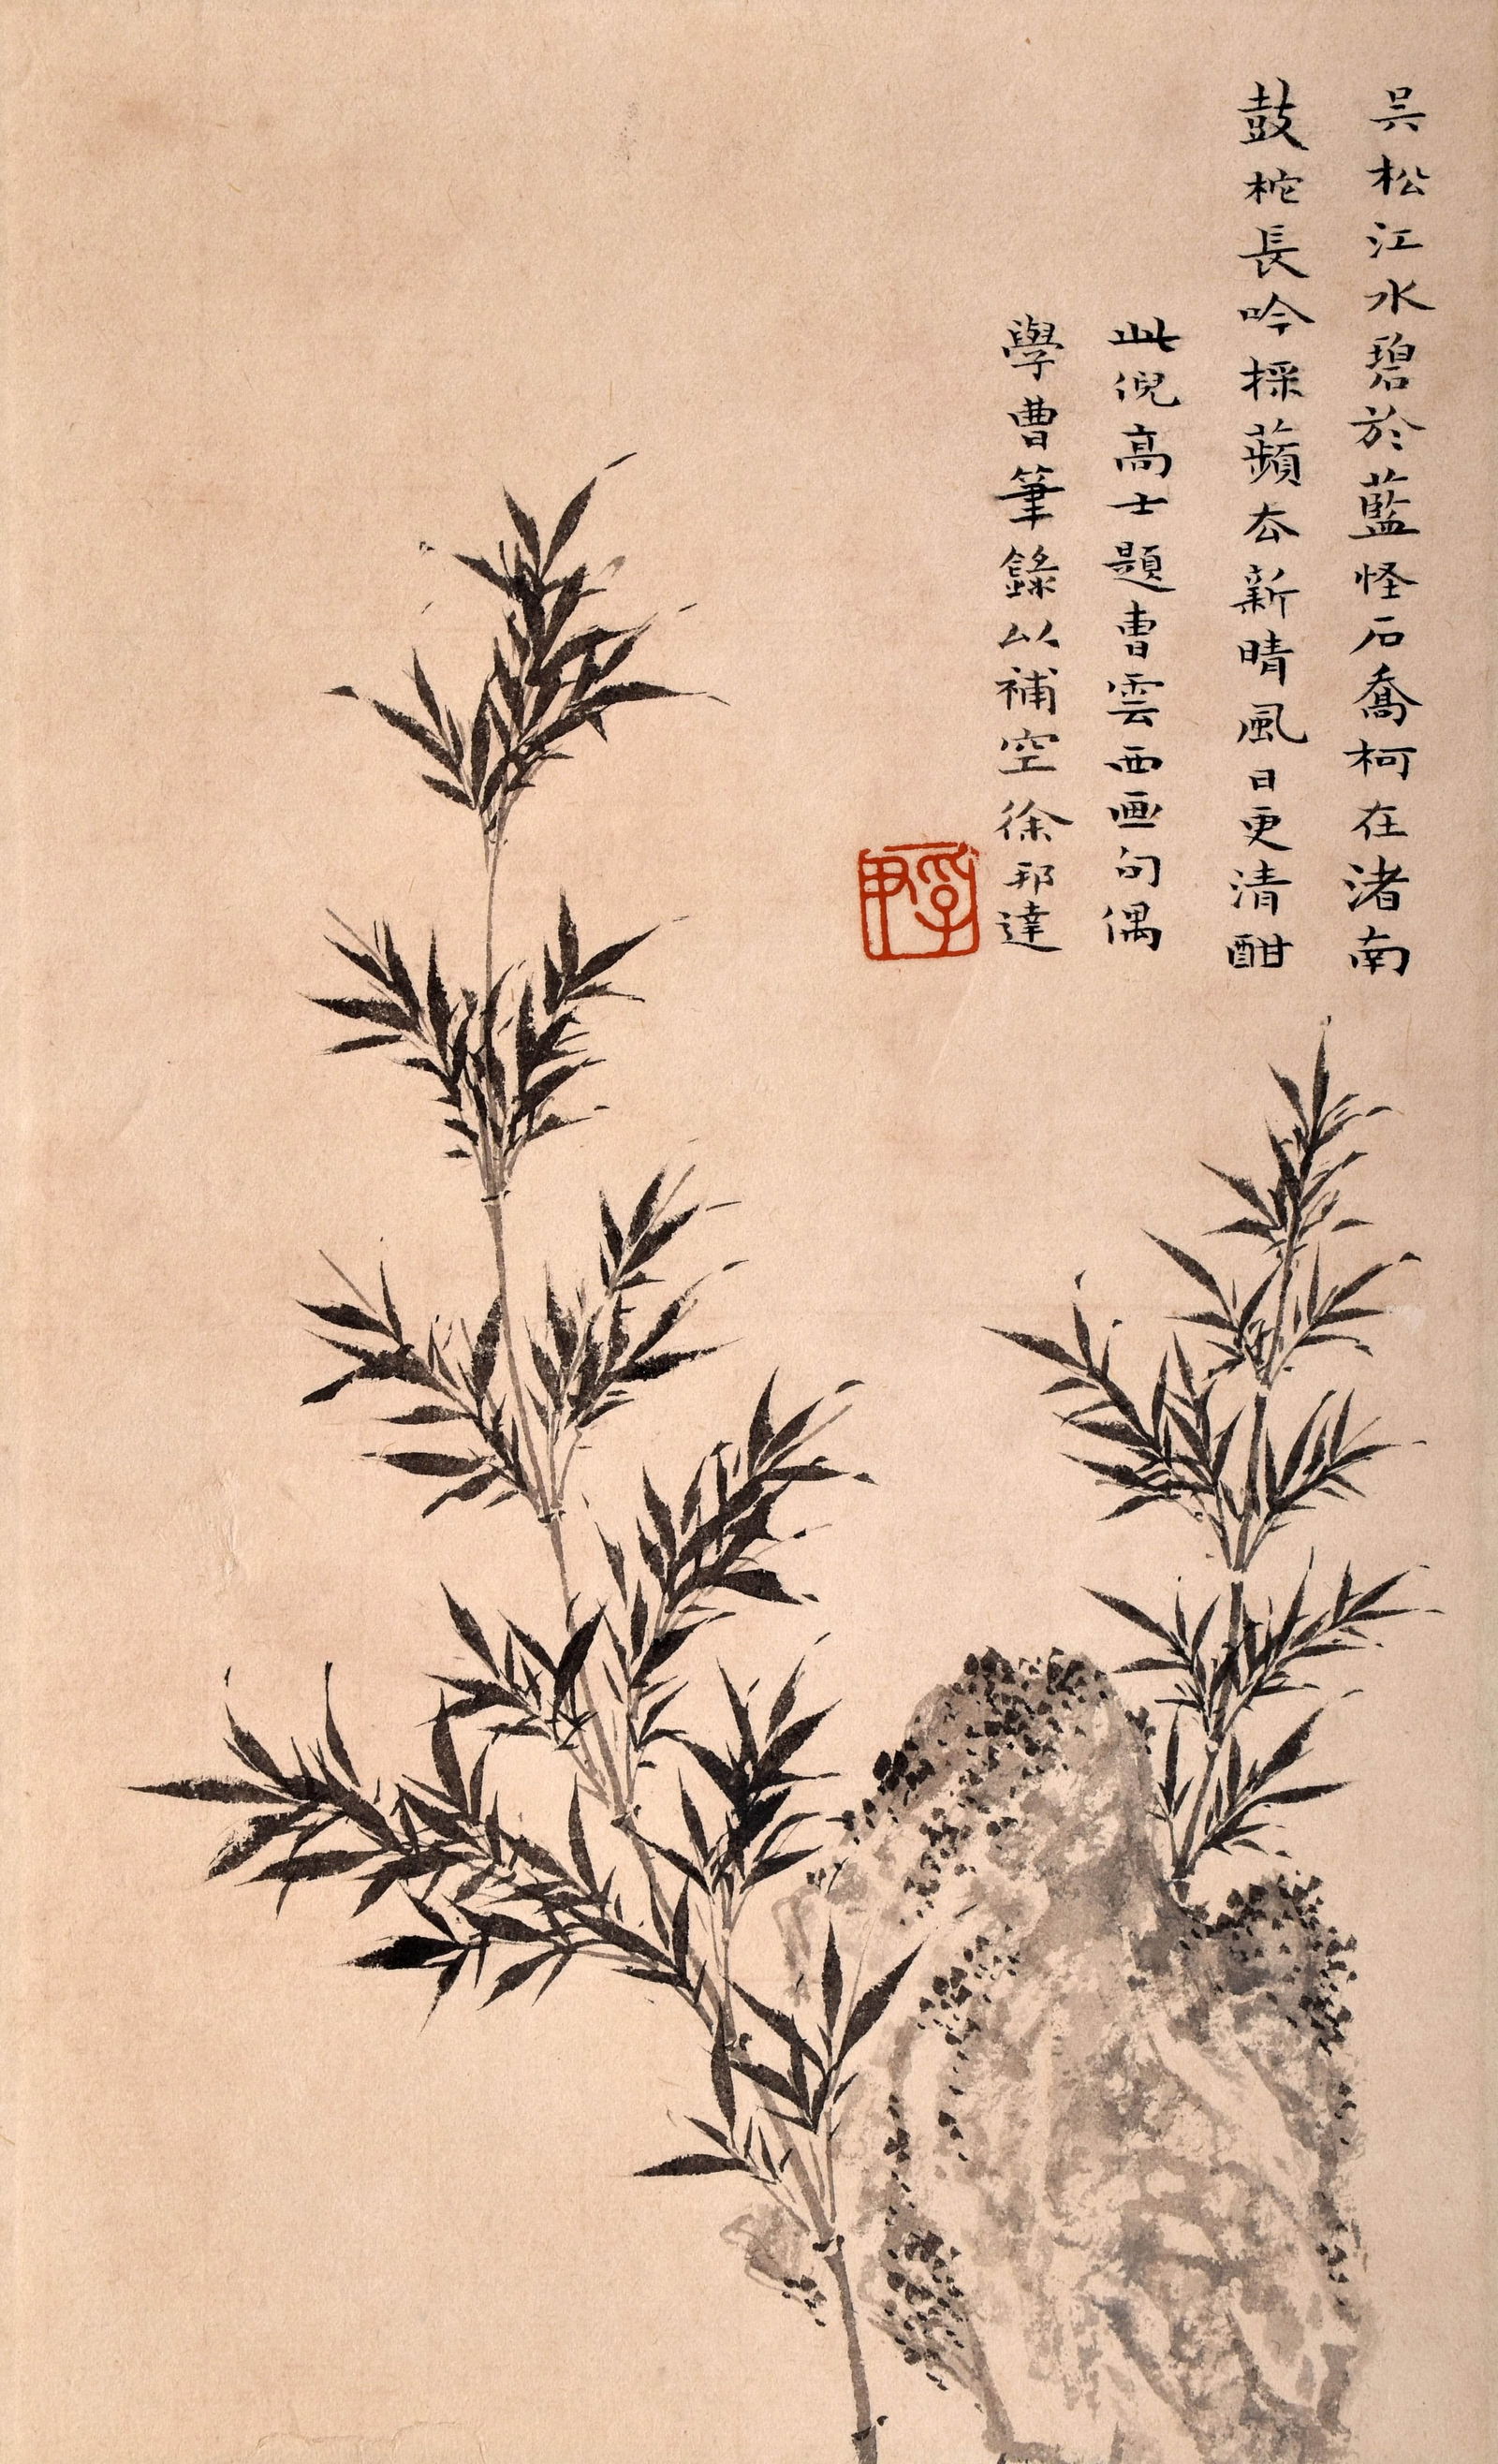 吴松江水碧於藍怪石喬柯在渚南
鼓柁長吟採蘋去新晴風日更清酣
此倪高士題曹雲西画句偶
學曹筆錄以補空徐邦達
孚尹